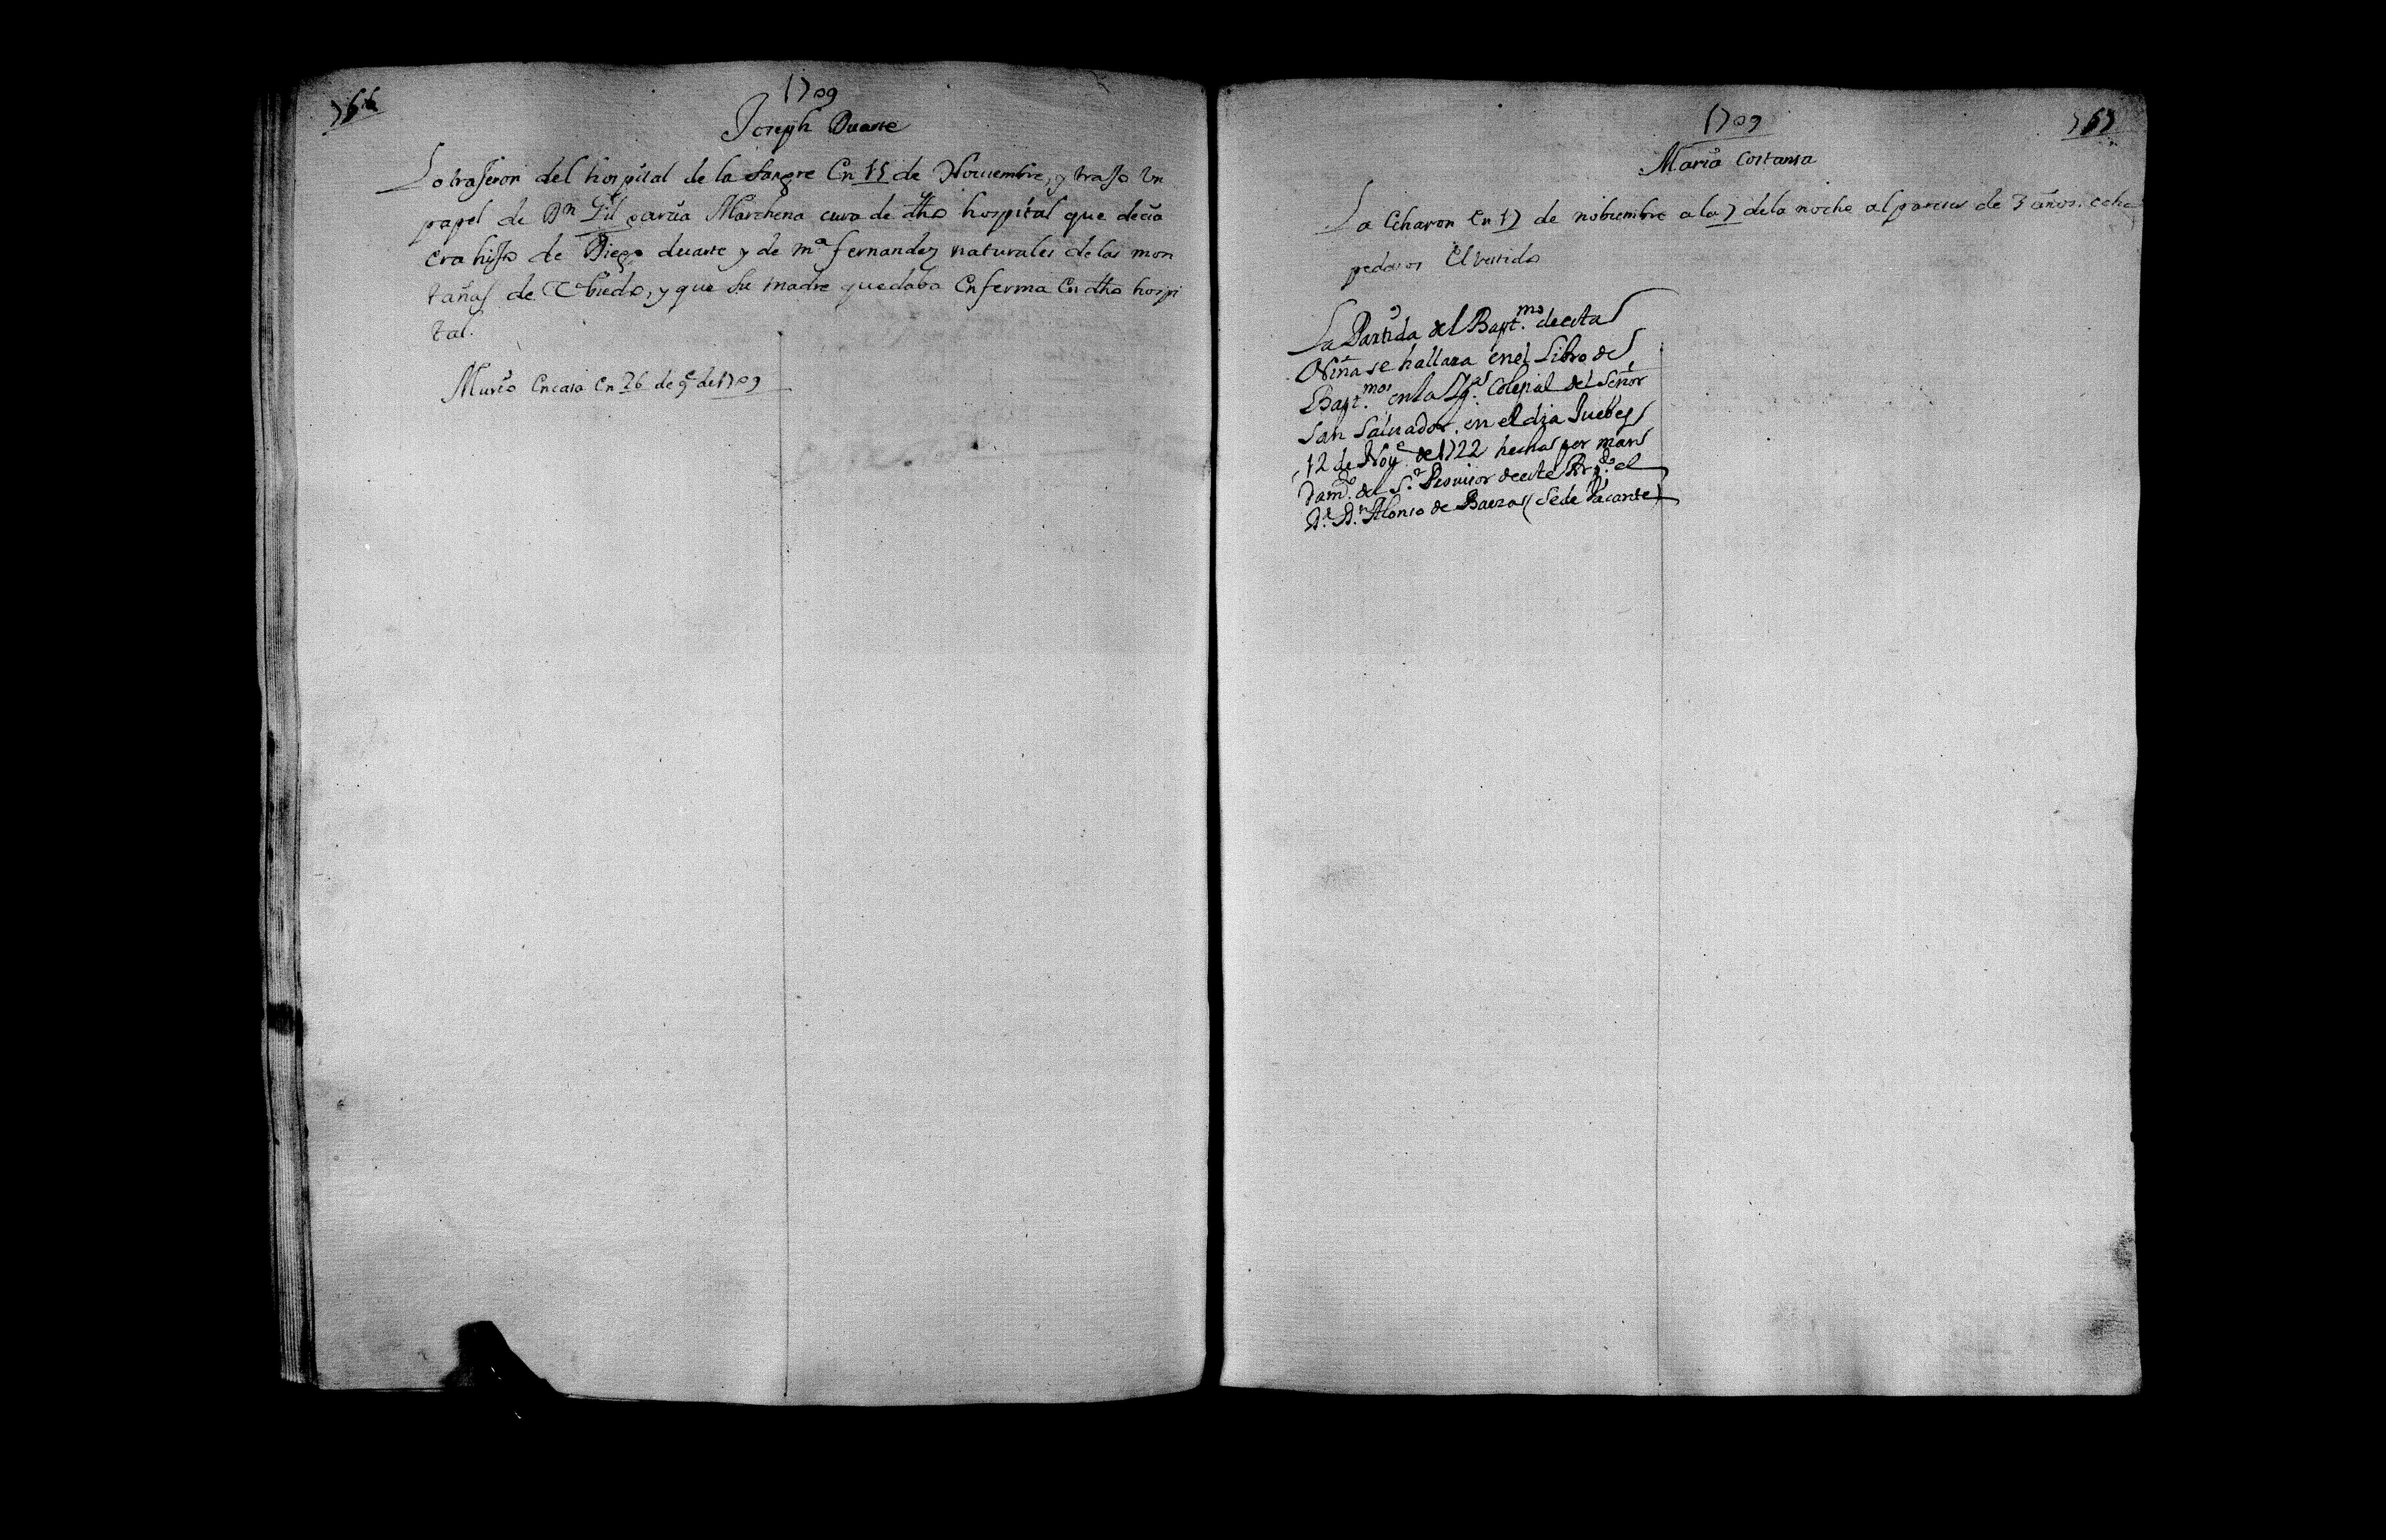 766
1709
Joseph Duarte
Lo trajeron del hospital de la Sangre En 15 de Nouiembre, y trajo Un
papel de Dn Gil garcia Marchena cura de dho hospital que decia
Era hijo de Diego duarte y de ma fernandez naturales de las mon
tañas de Obiedo, y que Su madre quedaba Enferma En dho hospi
tal.
Murio En casa En 26 de 9e de 1709
1709
767
Maria Costansa
La Echaron En 17 de nobiembre a la 7 de la noche al pareser de 3 años. echo
pedasos El bestido
La Partida del Bapt.mo de esta
Niña se hallara en el Libro de
Bapt.mos en la Ygª Colejial del Señor
San Saluador, en el dia Juebes
12 de Noye de 1722 hecha por man
damo. del Sr. Prouisor de este Arzdo. el
Dr. Dn. Alonso de Baeza (Sede Vacante)